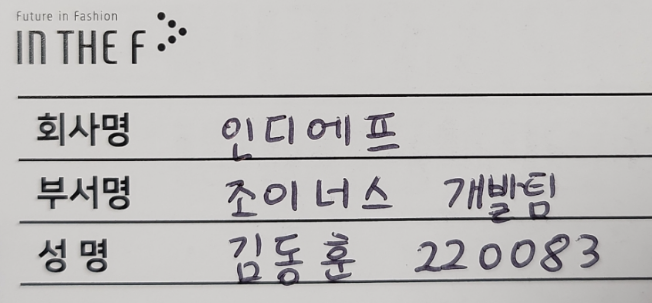 Future in Fashion
IN THE F
회사명 인디에프
부서명 조이너스 개발팀
성명 김동훈 220083